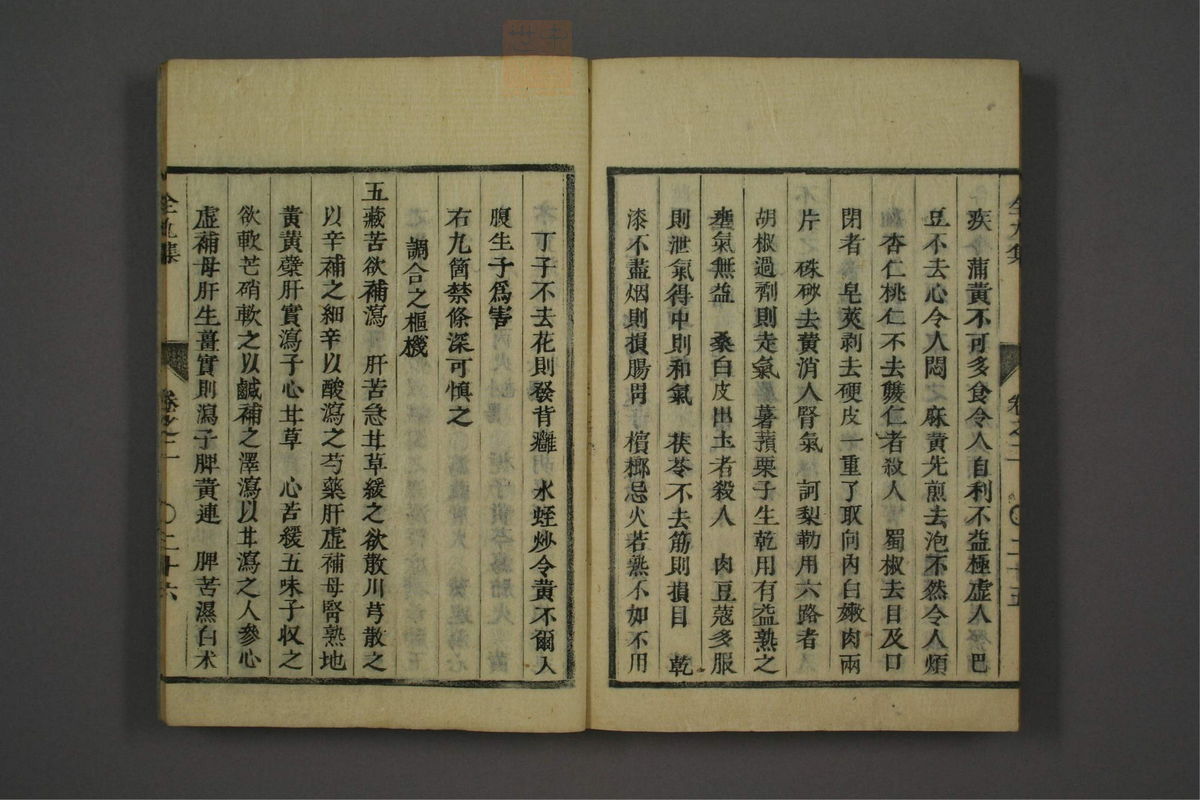 全九集 卷之二 〇二十五
疾 蒲黃不可多食令人自利不益極虛人 巴
豆不去心令人悶 麻黃先煎去泡不然令人煩
杏仁桃仁不去雙仁者殺人 蜀椒去目及口
閉者 皂莢剥去硬皮一重了取向內白嫩肉兩
片 硃砂去黃消人腎氣 訶梨勒用六路者
胡椒過劑則走氣 薯蕷栗子生乾用有益熟之
壅氣無益 桑白皮出土者殺人 肉豆蔻多服
則泄氣得中則和氣 茯苓不去筋則損目 乾
漆不盡烟則損腸胃 檳榔忌火若熟不如不用
丁子不去花則發背癰 水蛭炒令黃不爾入
腹生子爲害
右九箇禁條深可慎之
調合之樞機
五藏苦欲補瀉 肝苦急甘草緩之欲散川芎散之
以辛補之細辛以酸瀉之芍藥肝虛補母腎熟地
黃黃蘗肝實瀉子心甘草 心苦緩五味子収之
欲軟芒硝軟之以鹹補之澤瀉以甘瀉之人參心
虛補母肝生薑實則瀉子脾黃連 脾苦濕白朮
全九集 卷之二 〇二十六